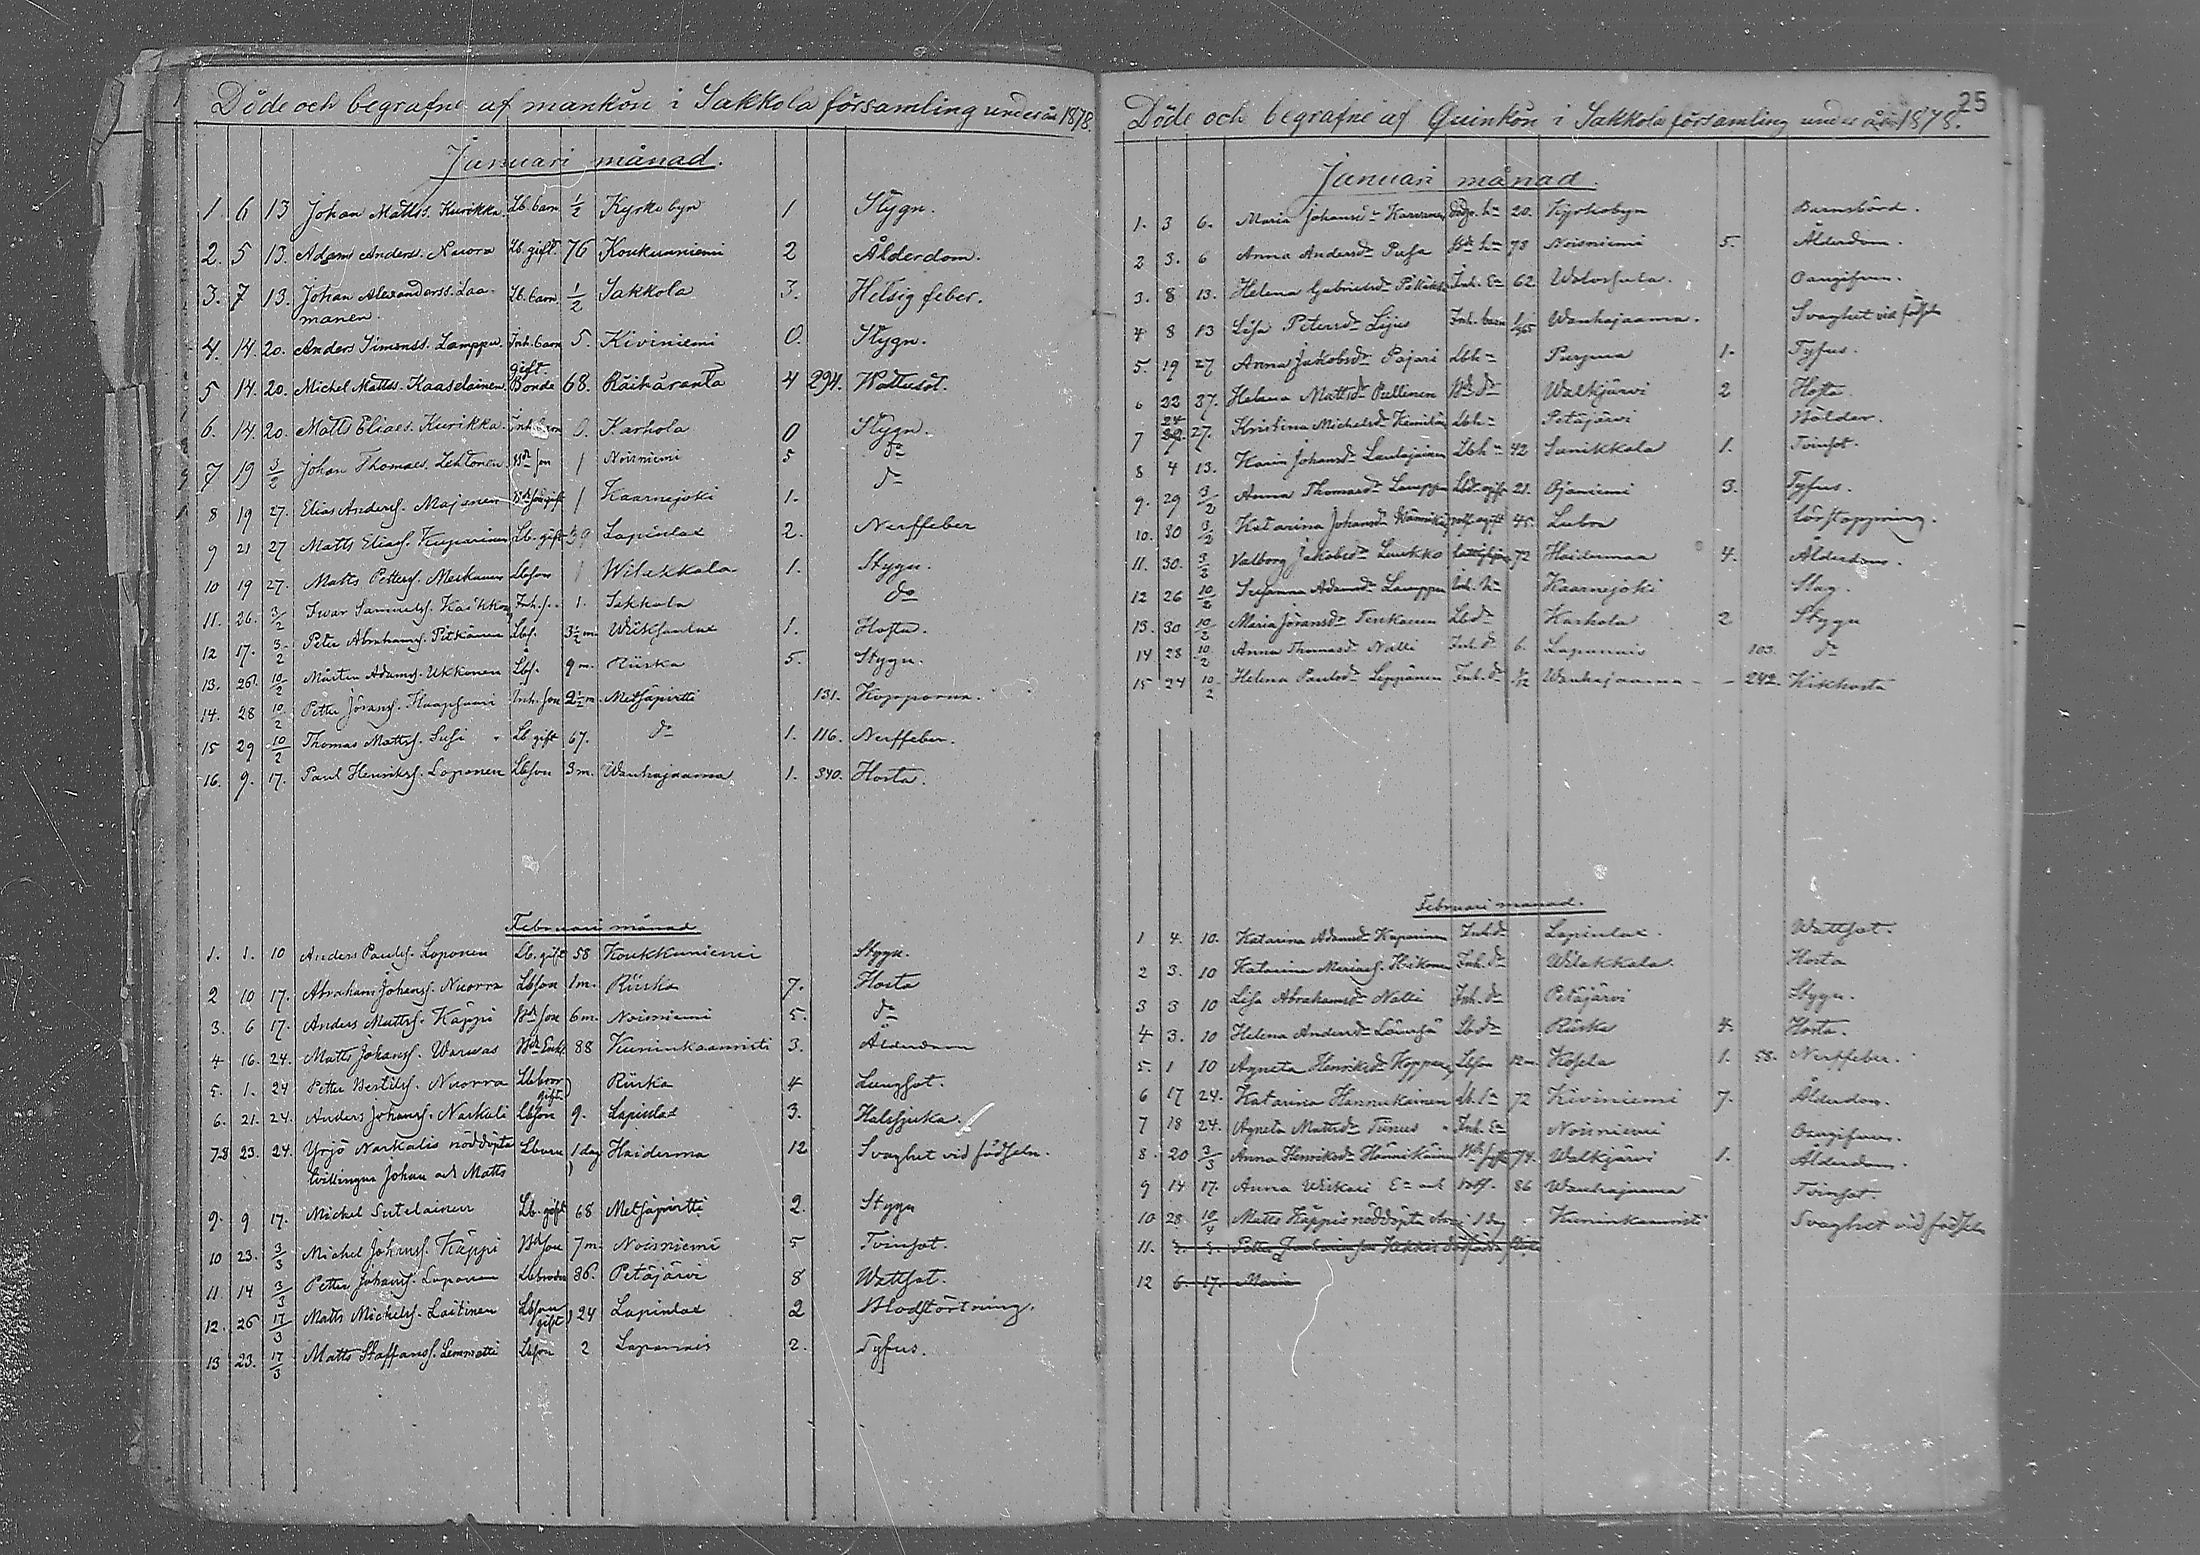 Döde och begrafne af mankön i Sakkola församling under år 1878.
Januari månad.
1. 6 13 Johan Matts. Kurikka Lb. barn 1/2 Kyrkobyn 1 Stygn.
2. 5 13. Adam Anders. Nuora Lb. gift. 76 Koukunniemi 2 Ålderdom.
3. 7 13. Johan Alexanderss. Laa- Lb. barn 1/2 Sakkola 3. Hetsig feber.
manen.
4. 14 20. Anders Simonss. Lamppu Inh. barn 5. Kiviniemi 0. Stygn.
gift.
5 14. 20. Michel Matts. Kaaselainen Bonde 68. Räihäranta 4 294. Wattusot.
6. 14 20. Matts Elias. Kurikka Inh. barn 0. Karhola 0 Stygn.
7 19 3/2 Johan Thomas. Lehtonen Bd son 1 Noisniemi 5 do
8 19 27. Elias Anders. Majanen 1 Kaarnejoki 1. do
9 21 27 Matts Elias. Kuparinen Lb. gift 39 Lapinlax 2. Nerffeber
10 19 27. Matts Petters. Meskanen Lbson 1 Wilakkala 1. Stygn.
11. 26. 3/2 Iwar Samuels. Kaikkon Inh. s. 1. Sakkola do
12 17. 3/2 Peter Abrahams. Pitkänen Lbs. 3 1/2 m. 1. Hosta.
13. 26. 10/2 Mårten Adams. Ukkonen Lbs. 9 m. Riiska 5. Stygn.
14. 28 10/2 Petter Jörans. Haapsaari Inh. son 2 1/2 m. Metsäpirtti 131. Kopporna.
15 29 10/2 Thomas Matts. Susi Lb gift 67. do 1. 116. Nerffeber.
16. 9. 17. Paul Henriks. Loponen Lbson 3 m. Wanhajaama 1. 340. Hosta.
Februari månad
1. 1. 10 Anders Pauls. Loponen Lb. gift 58 Koukkuniemi Stygn.
2 10 17. Abraham Johans. Nuorra Lbson 1 m. Riiska 7. Hosta
3. 6 17. Anders Matts. Käppi Bd son 6 m. Noisniemi 5. do
4 16. 24. Matts Johans. Warwas Bd Enkl. 88 Kuninkaanristi 3. Ålderdom
5. 1. 24 Petter Bertils. Nuorra Lbbror Riiska 4 Lungsot.
gift
6. 21. 24. Anders Johans. Naskali Lbson 9. Lapinlax 3. Halssjuka.
7.8 23. 24. Yrjö Naskalis nöddöpta Lbarn 1 dag Haiderma 12 Svaghet vid födseln.
tvillingar Johan och Matts
9. 9 17. Mickel Sutelainen Lb. gift 68 Metsäpirtti 2. Stygn
10 23. 3/3 Michel Johans. Käppi Bd son 7 m. Noisniemi 5 Tvinsot.
11. 14 3/3 Petter Johans. Loponen Lbbroder 36. Petäjärvi 8 Wattsot.
12. 26 17/3 Matts Mickels. Laitinen Lbson 24 Lapinlax 2 Blodstörtning.
gift
13 23. 17/3 Matts Staffans. Lemmetti Lbson 2 Lapannis 2. Tyfus.
25
Döde och begrafne af Quinkön i Sakkola församling under år 1878.
Januari månad.
1. 3 6. Maria Johansdr 20. Kyrkobyn Barnsbörd.
2 3. 6 Anna Andersdr Pusa 78 Noisniemi 5. Ålderdom.
3. 8 13. Helena Gabrielsdr Inh. Ea 62. Oangifven.
4 8 13 Lisa Petersdr Lijus Inh. barn Wanhajaama. Svaghet vid födseln
5. 19 27 Anna Jakobsdr Pajari Lbh. Purpua 1. Tyfus.
6 22 27. Helena Mattsdr Pullinen Bd dr Walkjärvi 2 Hosta.
24
7 27. Kristina Michelsdr Lbh. Petäjärvi Bölder.
8 4 13. Karin Johansdr Laulajainen Lbh. 42 Sunikkala 1. Tvinsot.
9. 29 3/2 Anna Thomasdr Lamppu 21. Ojaniemi 3. Tyfus.
10. 30 3/2 Katarina Johansdr 45. Förstoppning.
11. 30. 3/2 Valborg Jakobsdr Luukko 72 Haidermaa 4. Ålderdom.
12 26 10/2 Susanna Adamsdr Lamppu Inh. h. Kaarnejoki Slag.
13. 30 10/2 Maria Jöransdr Tenkanen Lbdr Karhola 2 Stygn
14 28 10/2 Anna Thomasdr Nalli Inh. dr 6. Lapannis 103. do
15 24 10/2 Helena Paulsdr Leppänen Inh. dr 1/2 Wanhajaama 242. Kikhosta
Februari månad.
1. 4. 10. Katarina Adamsdr Kuparinen Inh. dr Lapinlax. Wattsot.
2 3. 10 Katarina Inh. dr Wilakkala. Hosta
3 3 10 Lisa Abrahamsdr Nalli Inh. dr Petäjärvi Stygn.
4 3. 10 Helena Andersdr Lbdr Riiska 4. Hosta.
5. 1 10 Agneta Henriksdr Hoppen Lbson 12 m. Kosela 1. 58. Nerffeber.
6 17 24. Katarina Hannukainen 72 Kiviniemi 7. Ålderdom.
7 18 24. Agneta Mattsdr Tunus Inh. Ea Noisniemi Oangifven.
8. 20 3/3 Anna Henriksdr Hännikäinen 74. Walkjärvi 1. Ålderdom.
9 14 17. Anna Wirkari 86 Wanhajaama Tvinsot
10 28 10/4 Matts Käppis nöddöpta 1 dag Kuninkaanristi Svaghet vid födseln
11. Petter
12 6. 17. Maria